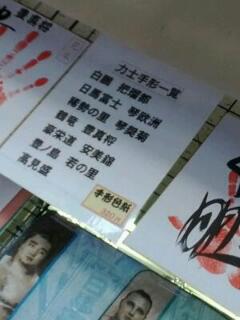 豊真将
力士手形一覧
白鵬 把瑠都
日馬富士 琴欧洲
稀勢の里 琴奨菊
鶴竜 豊真将
豪栄道 安美錦
豊ノ島 若の里
高見盛
手形色紙